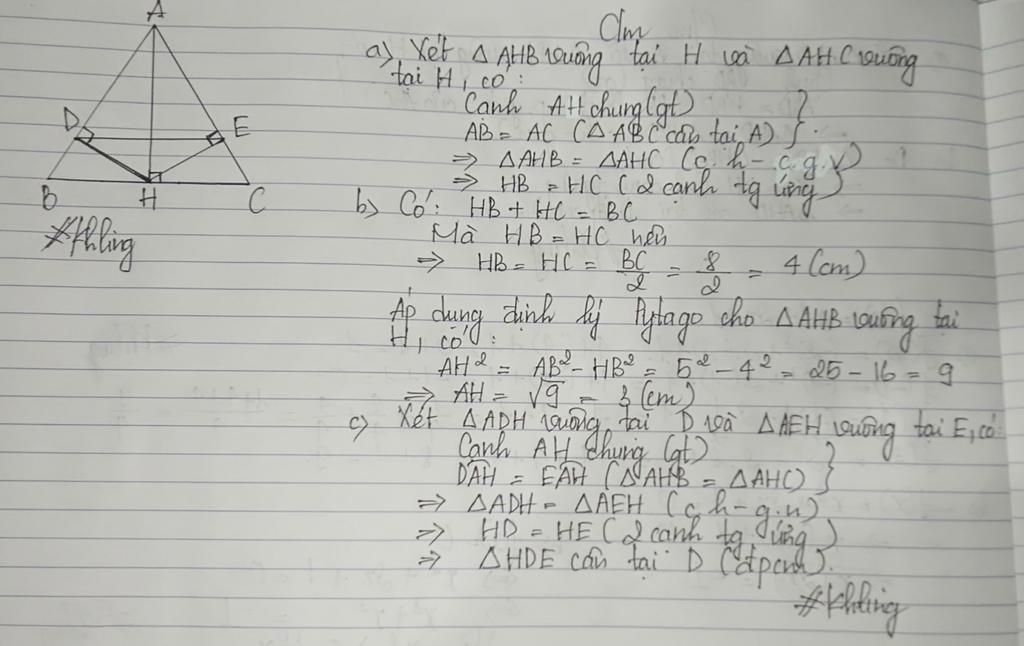 A
D
E
B
H
C
#Khling
Clm
a) Xét △AHB vuông tại H và △AHC vuông
tại H, có:
Cạnh AH chung (gt)
AB = AC (△ABC cân tại A)
⇒ △AHB = △AHC (c.h - c.g.v)
⇒ HB = HC (2 cạnh tg ứng)
b) Có: HB + HC = BC
Mà HB = HC nên
⇒ HB = HC = BC/2 = 8/2 = 4 (cm)
Áp dụng định lý Pytago cho △AHB vuông tại
H, có:
AH² = AB² - HB² = 5² - 4² = 25 - 16 = 9
⇒ AH = √9 = 3 (cm)
c) Xét △ADH vuông tại D và △AEH vuông tại E, có:
Cạnh AH chung (gt)
DAH = EAH (△AHB = △AHC)
⇒ △ADH = △AEH (c.h - g.n)
⇒ HD = HE (2 cạnh tg ứng)
⇒ △HDE cân tại D (đpcm).
#Khling